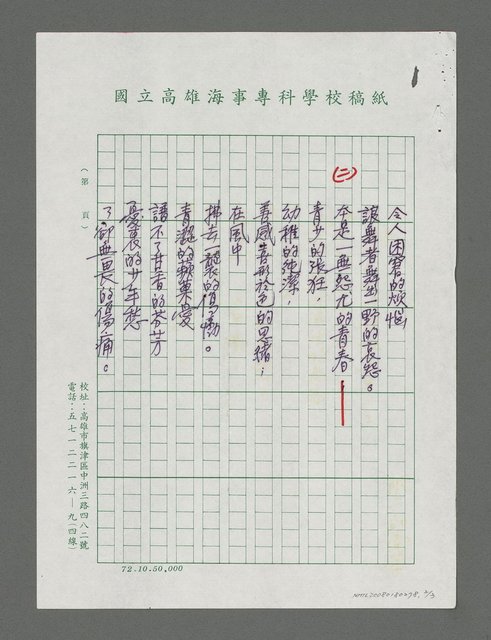 國立高雄海事專科學校稿紙
令人困窘的煩惱
讓舞者舞出一野的哀怨。
(二)
本是一無怨尤的青春
青少的張狂，
幼稚的純潔，
善感喜形於色的思緒；
在風中
拂去一襲的傷慟。
青澀的蘋果愛
譜不了甘香的芬芳
憂喪的少年愁
了卻無畏的傷痛。
（第　頁）
校址：高雄市旗津區中洲三路四八二號
電話：五七一二二一六—九（四線）
72.10.50,000
NMTL20080180278, 2/3